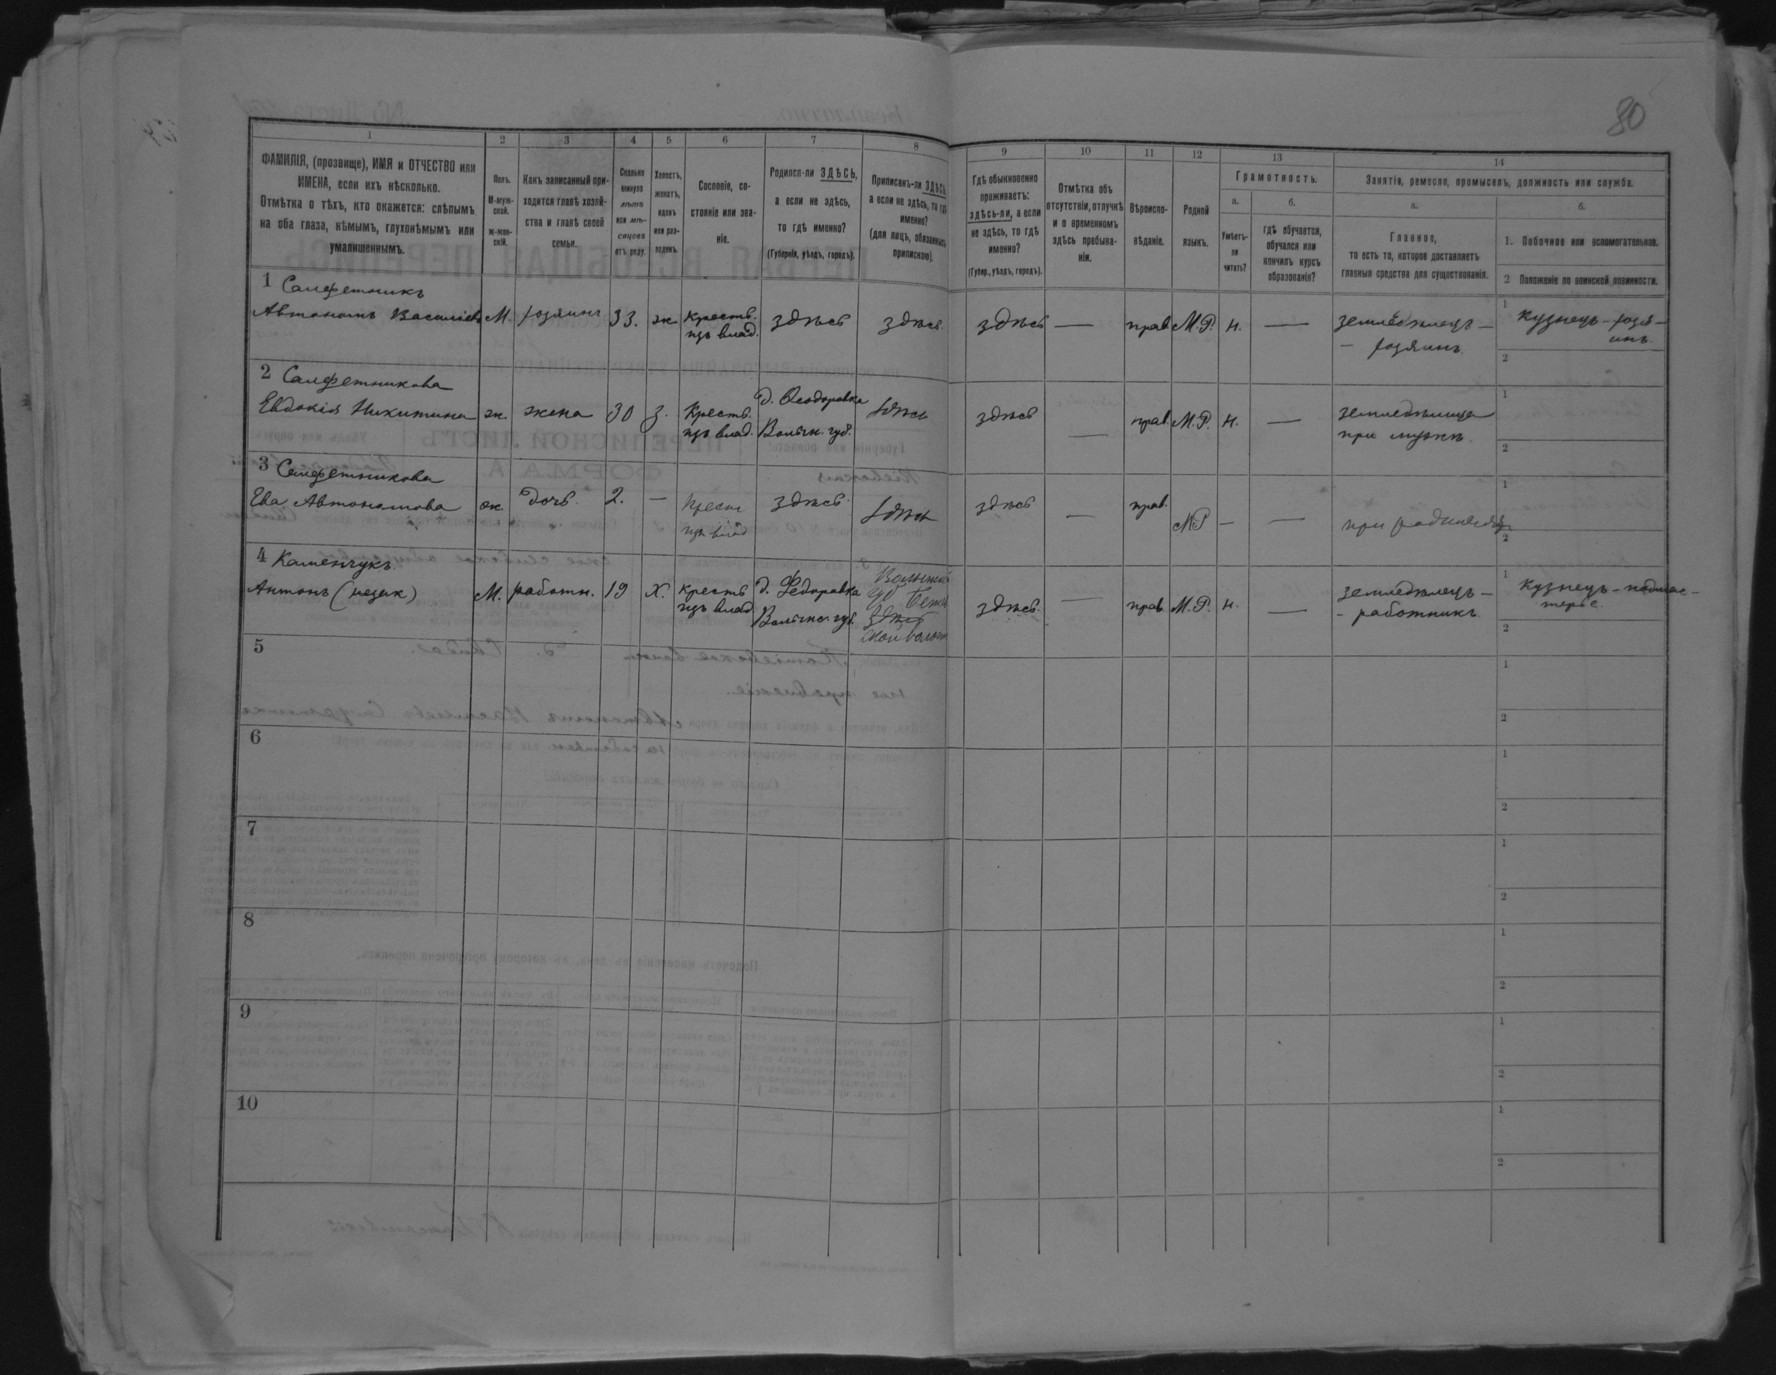 80
1 2 3 4 5 6 7 8 9 10 11 12 13 14
ФАМИЛІЯ, (прозвище), ИМЯ и ОТЧЕСТВО или
ИМЕНА, если ихъ нѣсколько.
Отмѣтка о тѣхъ, кто окажется: слѣпымъ
на оба глаза, нѣмымъ, глухонѣмымъ или
умалишеннымъ.
Полъ.
М-муж-
ской.
ж-жен-
скій.
Какъ записанный при-
ходится главѣ хозяй-
ства и главѣ своей
семьи.
Сколько
минуло
лѣтъ
или мѣ-
сяцевъ
отъ роду.
Холостъ,
женатъ,
вдовъ
или раз-
веденъ.
Сословіе, со-
стояніе или зва-
ніе.
Родился-ли ЗДѢСЬ,
а если не здѣсь,
то гдѣ именно?
(Губернія, уѣздъ, городъ).
Приписанъ-ли ЗДѢСЬ,
а если не здѣсь, то гдѣ
именно?
(Для лицъ, обязанныхъ
припискою).
Гдѣ обыкновенно
проживаетъ:
здѣсь-ли, а если
не здѣсь, то гдѣ
именно?
(Губер., уѣздъ, городъ).
Отмѣтка объ
отсутствіи, отлучкѣ
и о временномъ
здѣсь пребыва-
ніи.
Вѣроиспо-
вѣданіе.
Родной
языкъ.
Грамотность.
а.
Умѣетъ-
ли
читать?
б.
гдѣ обучается,
обучался или
кончилъ курсъ
образованія?
Занятіе, ремесло, промыселъ, должность или служба.
а.
Главное,
то есть то, которое доставляетъ
главныя средства для существованія.
б.
1. Побочное или вспомогательное.
2 Положеніе по воинской повинности.
1 Салфетникъ
Автономъ Василіевъ М. хозяинъ 33. ж. Крестьь. здѣсь здѣсь здѣсь — прав. М.Р. н. — земледѣлецъ — 1 Кузнецъ – хозя-
изъ влад. — хозяинъ. инъ.
2
2 Салфетникова
Евдокія Никитина ж. жена 30 з. Крестьь. д. Ѳеодоровка здѣсь здѣсь — прав. М.Р. н. — земледѣлица 1
изъ влад. Волын. губ. при мужѣ 2
3 Салфетникова
Ева Автономова ж. дочь 2. — Крест здѣсь. здѣсь здѣсь — прав. М.Р — — при родителяхъ 1
изъ влад 2
4 Каменчукъ
Антонъ М. работн. 19 Х. Крестьь д. Федоровка здѣсь — прав. М.Р. н. — земледѣлецъ — 1 Кузнецъ – подмас-
изъ влад Волынс. губ. — работникъ терье.
2
5 1
2
6 1
2
7 1
2
8 1
2
9 1
2
10 1
2